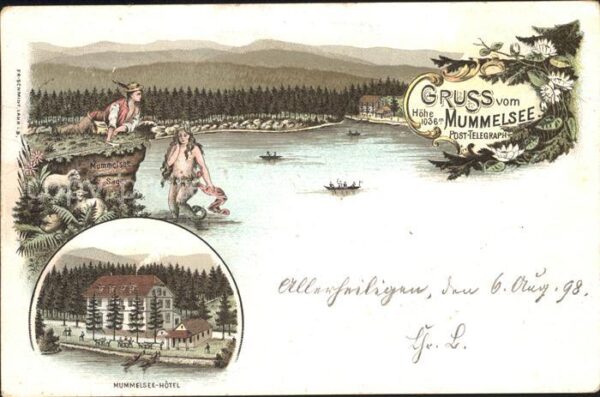 GRUSS vom
Höhe
1036m MUMMELSEE.
POST-TELEGRAPH
Mummelsee
Sage
Allerheiligen, den 6. Aug. 98.
Chr. B.
MUMMELSEE-HÔTEL